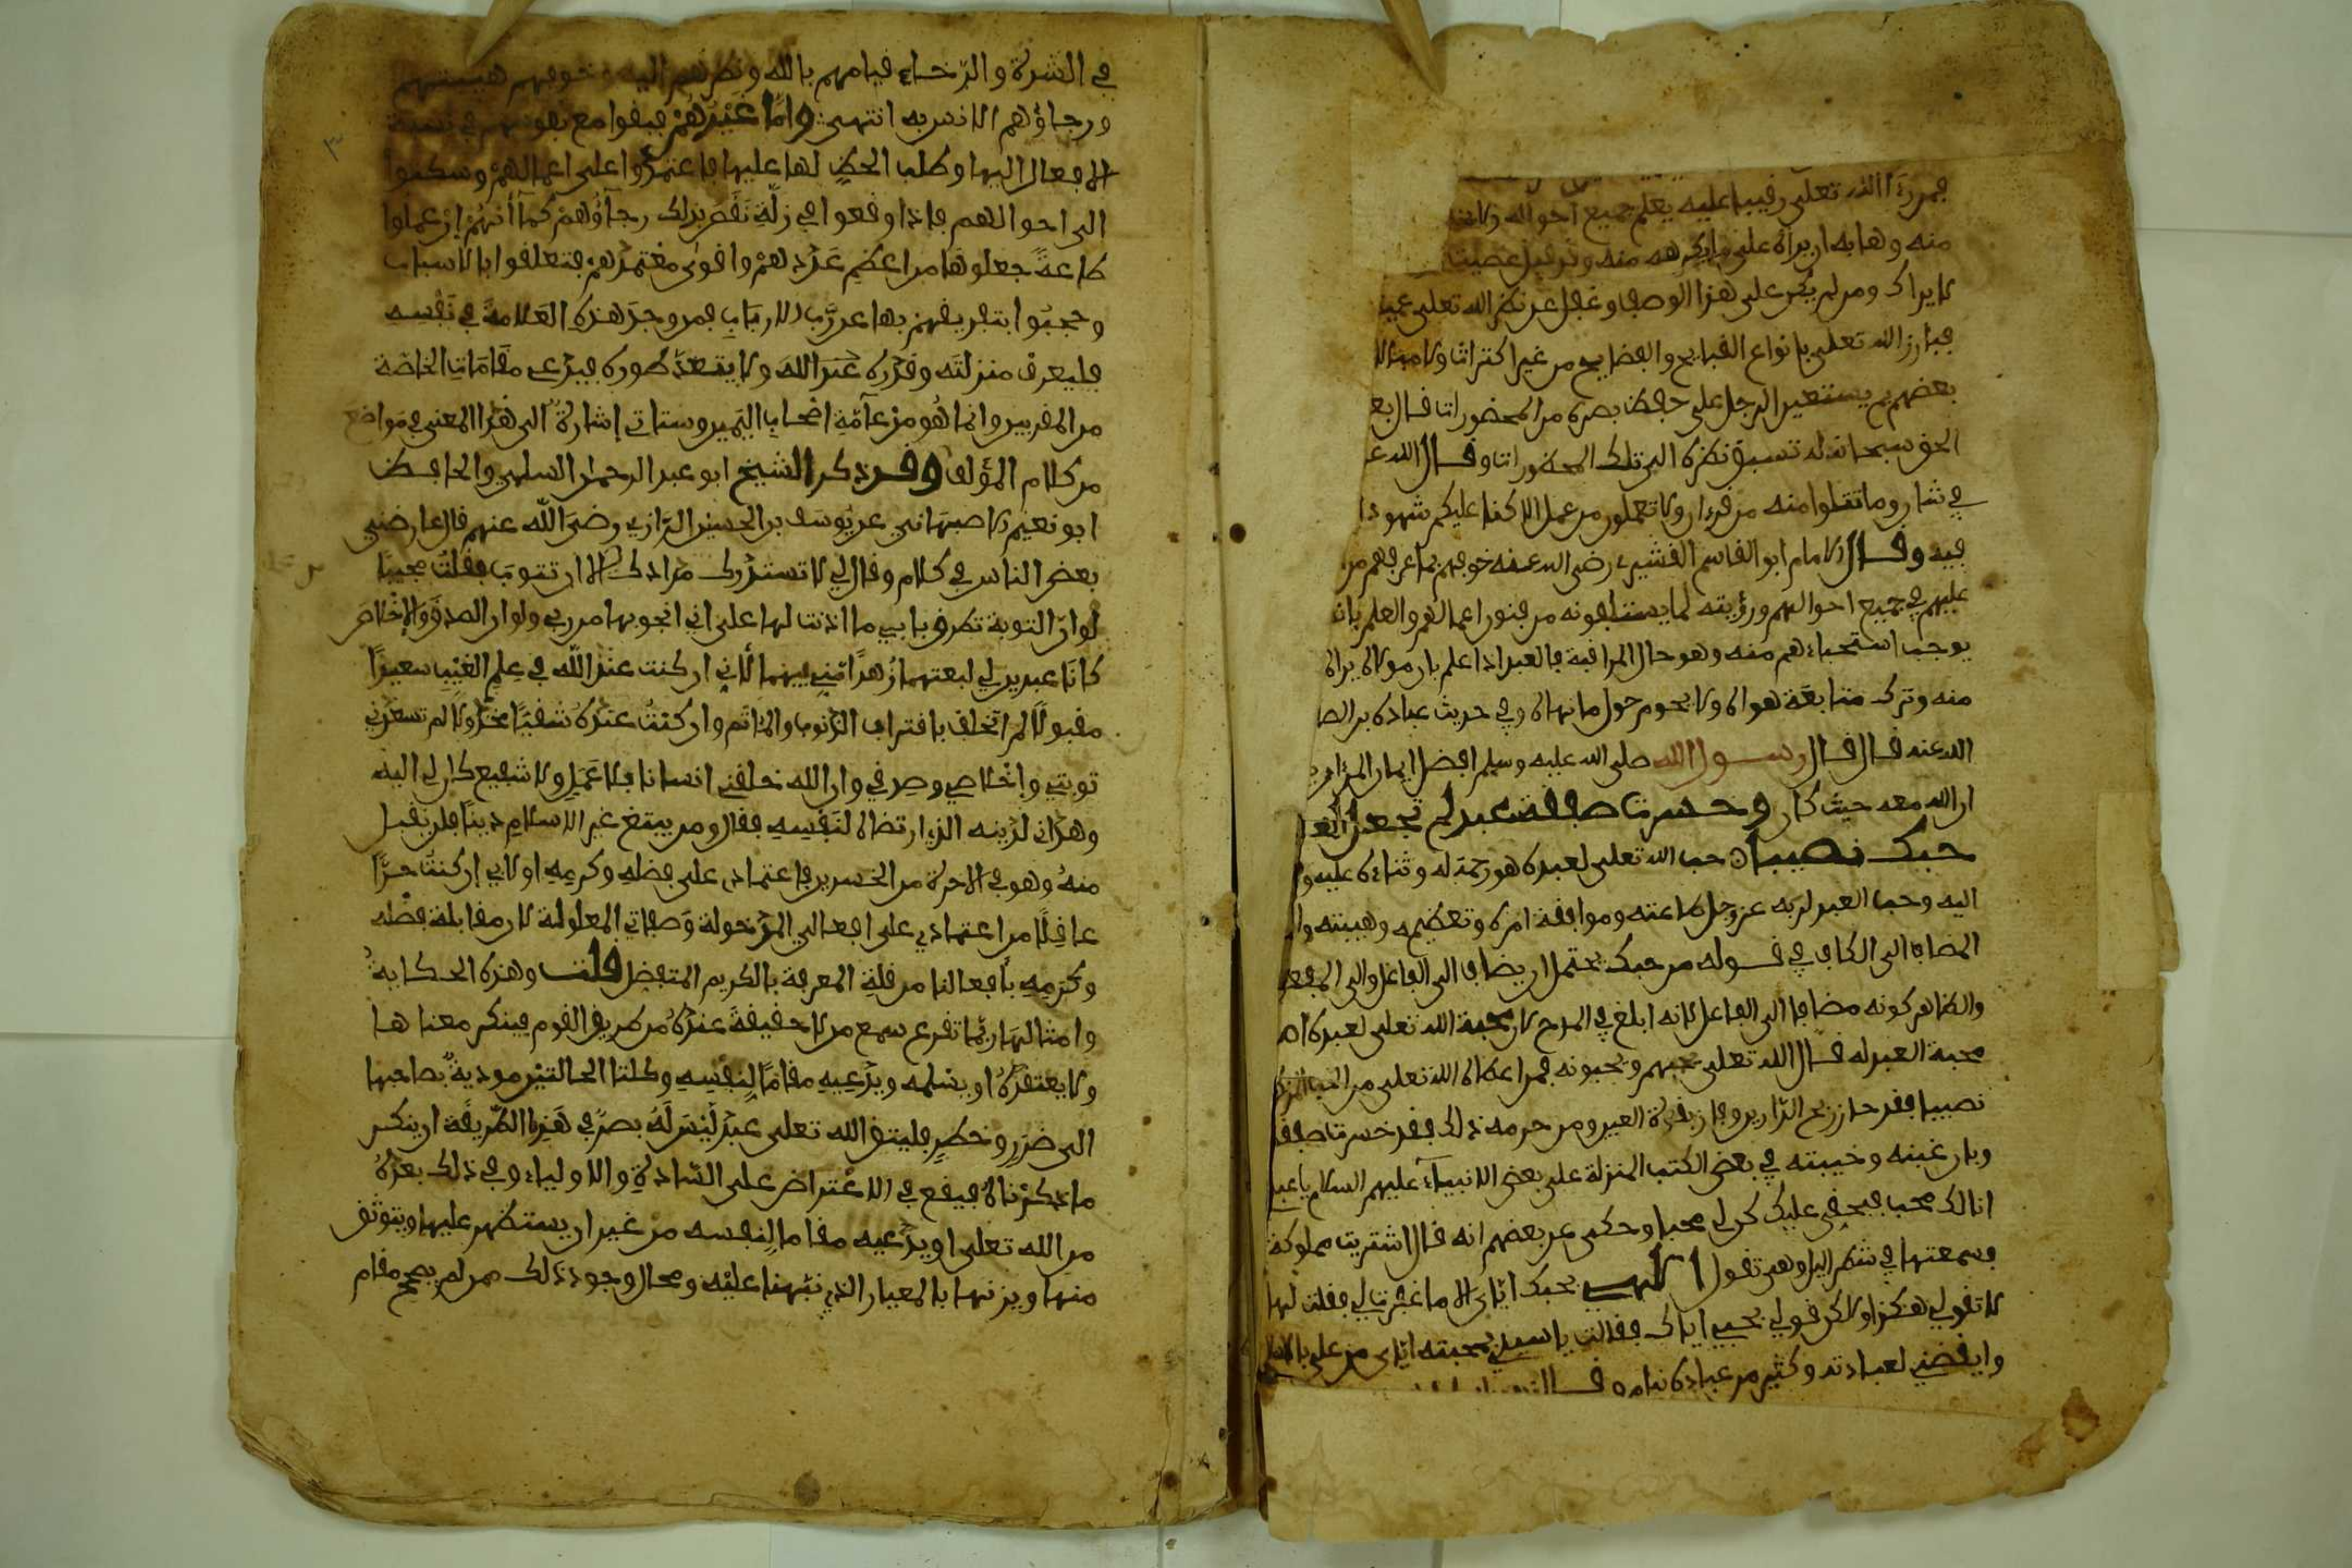 فمن رءا الله تعلى رقيبا عليه يعلم جميع احواله
منه وهابه ان يراه على ما يكرهه منه وقد قيل عصيت
لا يراك ومن لم يكن على هذا الوصف وغفل عن نظر الله تعلى عمي
فبارز الله تعلى بانواع القبايح والفضايح من غير اكتراث ولا مبالا
بعضهم بم يستعين الرجل على حفظ بصره من المحضورات فقال بع
الحق سبحانه له تسبق نظره الى تلك المحظورات وقال الله ع
في شان وما تتلوا منه من قرءان ولا تعملون من عمل الا كنا عليكم شهودا
فيه وقال الامام ابو القاسم القشيري رضي الله عنه خوفهم بما عرفهم من
عليهم في جميع احوالهم ورؤيته لما يستلبقونه من فنون اعمالهم والعلم بان
يوجب استحياءهم منه وهو حال المراقبة فالعبد اذا علم بان مولاه يراه
منه وترك متابعة هواه ولا يحوم حول ما نهاه وفي حديث عبادة بن الصا
الله عنه قال قال رسول الله صلى الله عليه وسلم افضل ايمان المرء ان
ان الله معه حيث كان وخسرت صفقة عبد لم تجعل له
حبك نصيبا حب الله تعلى لعبده هو رحمته له وثناءه عليه و
اليه وحب العبد لربه عز وجل طاعته وموافقة امره وتعظيمه وهيبته وا
المضاف الى الكاف في قوله من حبك يحتمل ان يضاف الى الفاعل والى المفعو
والظاهر كونه مضافا الى الفاعل لانه ابلغ في المدح لان محبة الله تعلى لعبده
محبة العبد له قال الله تعلى يحبهم ويحبونه فمن اعطاه الله تعلى من الحب
نصيبا فقد حاز ربح الدارين وفاز بقرة العين ومن حرمه ذلك فقد خسرت صفقـ
وبان غبنه وخيبته في بعض الكتب المنزلة على بعض الانبياء عليهم السلام يا عبد
انا لك محب فبحقي عليك كن لي محبا وحكي عن بعضهم انه قال اشتريت مملوكة
فسمعتها في شطر اليل وهي تقول الهي بحبك اياي الا ما غفرت لي فقلت لها
لا تقولي هكذا ولاكن قولي بحبي اياك فقالت يا سيدي بمحبته اياي من علي بالاسلا
وايقضني لعبادته وكثير من عباده نيام
في الشدة والرخاء قيامهم بالله ونظرهم اليه خوفهم هيبتهم
ورجاؤهم الانس به انتهى واما غيرهم فبقوا مع نفوسهم في نسبة
الافعال اليها وطلب الحظ لها عليها فاعتمدوا على اعمالهم وسكنوا
الى احوالهم فاذا وقعوا في زلة نقص بذلك رجاؤهم كما انهم اذ عملوا
طاعة جعلوها من اعظم عددهم واقوى معتمدهم فتعلقوا بالاسباب
وحجبوا بتفريقهم بها عن رب الارباب فمن وجد هذه العلامة في نفسه
فليعرف منزلته وقدره عند الله ولا يتعد طوره فيدعي مقامات الخاصة
من المقربين وانما هو من عامة اصحاب اليمين وستاتي اشارة الى هذا المعنى في مواضع
من كلام المؤلف وقد ذكر الشيخ ابو عبد الرحمن السلمي والحافظ
ابو نعيم الاصبهاني عن يوسف بن الحسين الرازي رضي الله عنهم قال عارضني
بعض الناس في كلام وقال لي لا تستدرك مرادك الا ان تتوب فقلت مجيبا
لو ان التوبة تطرق بابي ما اذنت لها على اني انجو بها من ربي ولو ان الصدق والاخلاص
كانا عبدين لي لبعتهما زهدا مني فيهما لأني ان كنت عند الله في علم الغيب سعيدا
مقبولا لم اتخلف باقتراف الذنوب والماثم وان كنت عنده شقيا مخذولا لم تسعدني
توبتي واخلاصي وصدقي وان الله خلقني انسانا بلا عمل ولا شفيع كان لي اليه
وهداني لدينه الذي ارتضاه لنفسه فقال ومن يبتغ غير الاسلام دينا فلن يقبل
منه وهو في الاخرة من الخسرين فاعتمادي على فضله وكرمه اولى بي ان كنت حرا
عاقلا من اعتمادي على افعالي المدخولة وصفاتي المعلولة لان مقابلة فضله
وكرمه بافعالنا من قلة المعرفة بالكريم المتفضل قلت وهذه الحكاية
وامثالها ربما تقرع سمع من لا حقيقة عنده من طريق القوم فينكر معناها
ولا يعتقده او يسلمه ويدعيه مقاما لنفسه وكلتا الحالتين مودية بصاحبها
الى ضرر وخطر فليتق الله تعلى عبد ليس له بصر في هذه الطريقة ان ينكر
ما ذكرناه فيقع في الاعتراض على السادة والاولياء وفي ذلك بعده
من الله تعلى او يدعيه مقاما لنفسه من غير ان يستظهر عليها ويتوثق
منها ويزنها بالمعيار الذي نبهنا عليه ومحال وجود ذلك ممن لم يصح مقام